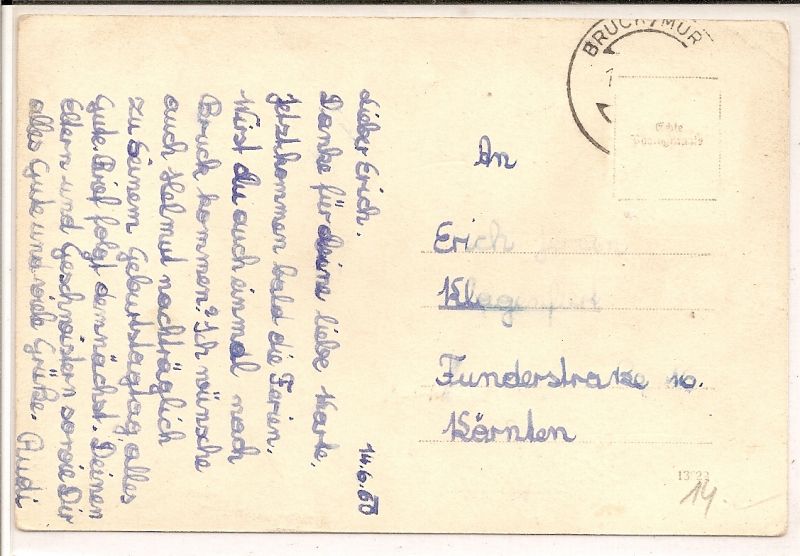 Lieber Erich.
Danke für deine liebe Karte.
Jetzt kommen bald die Ferien.
Wirst du auch einmal nach
Bruck kommen? Ich wünsche
auch Helmut nachträglich
zu seinem Geburtstagtag alles
Gute. Brief folgt demnächst. Deinen
Eltern und Geschwistern sowie Dir
alles Gute und viele Grüße. Rudi
14.6.60
BRUCK/MUR
Echte
An
Erich
Klagenfurt
Funderstraße 10.
Kärnten
14.